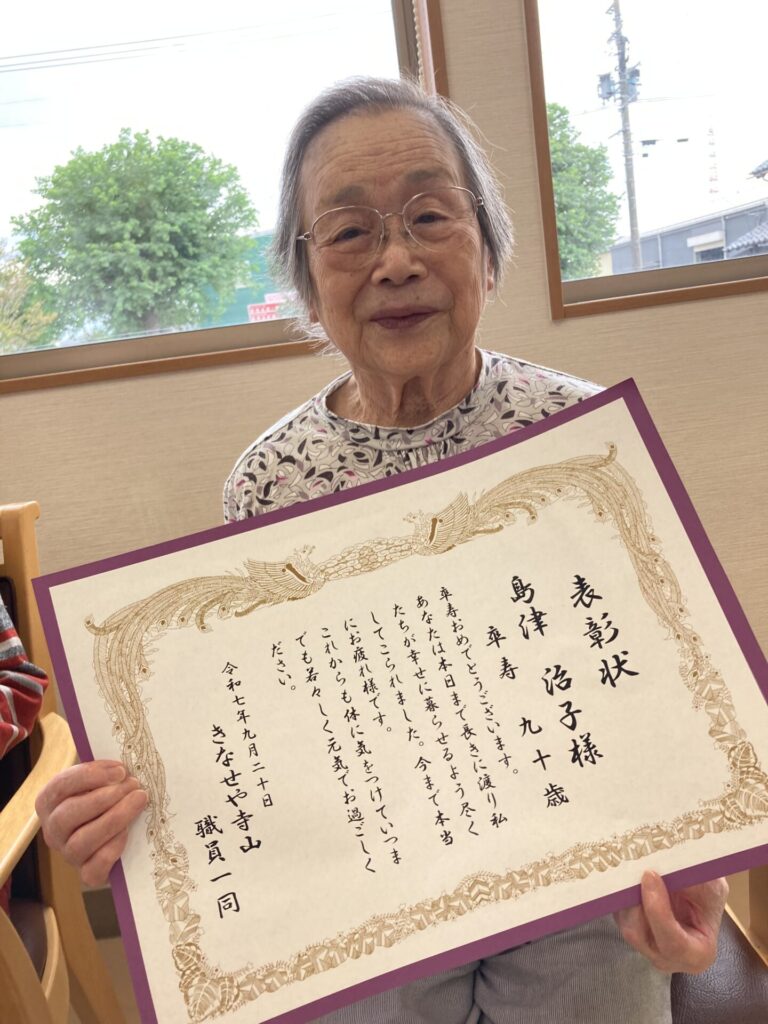 表彰状
島津 治子様
卒寿 九十歳
卒寿おめでとうございます。
あなたは本日まで長きに渡り私
たちが幸せに暮らせるよう尽く
してこられました。今まで本当
にお疲れ様です。
これからも体に気をつけていつま
でも若々しく元気でお過ごしく
ださい。
令和七年九月二十日
きなせや寺山
職員一同